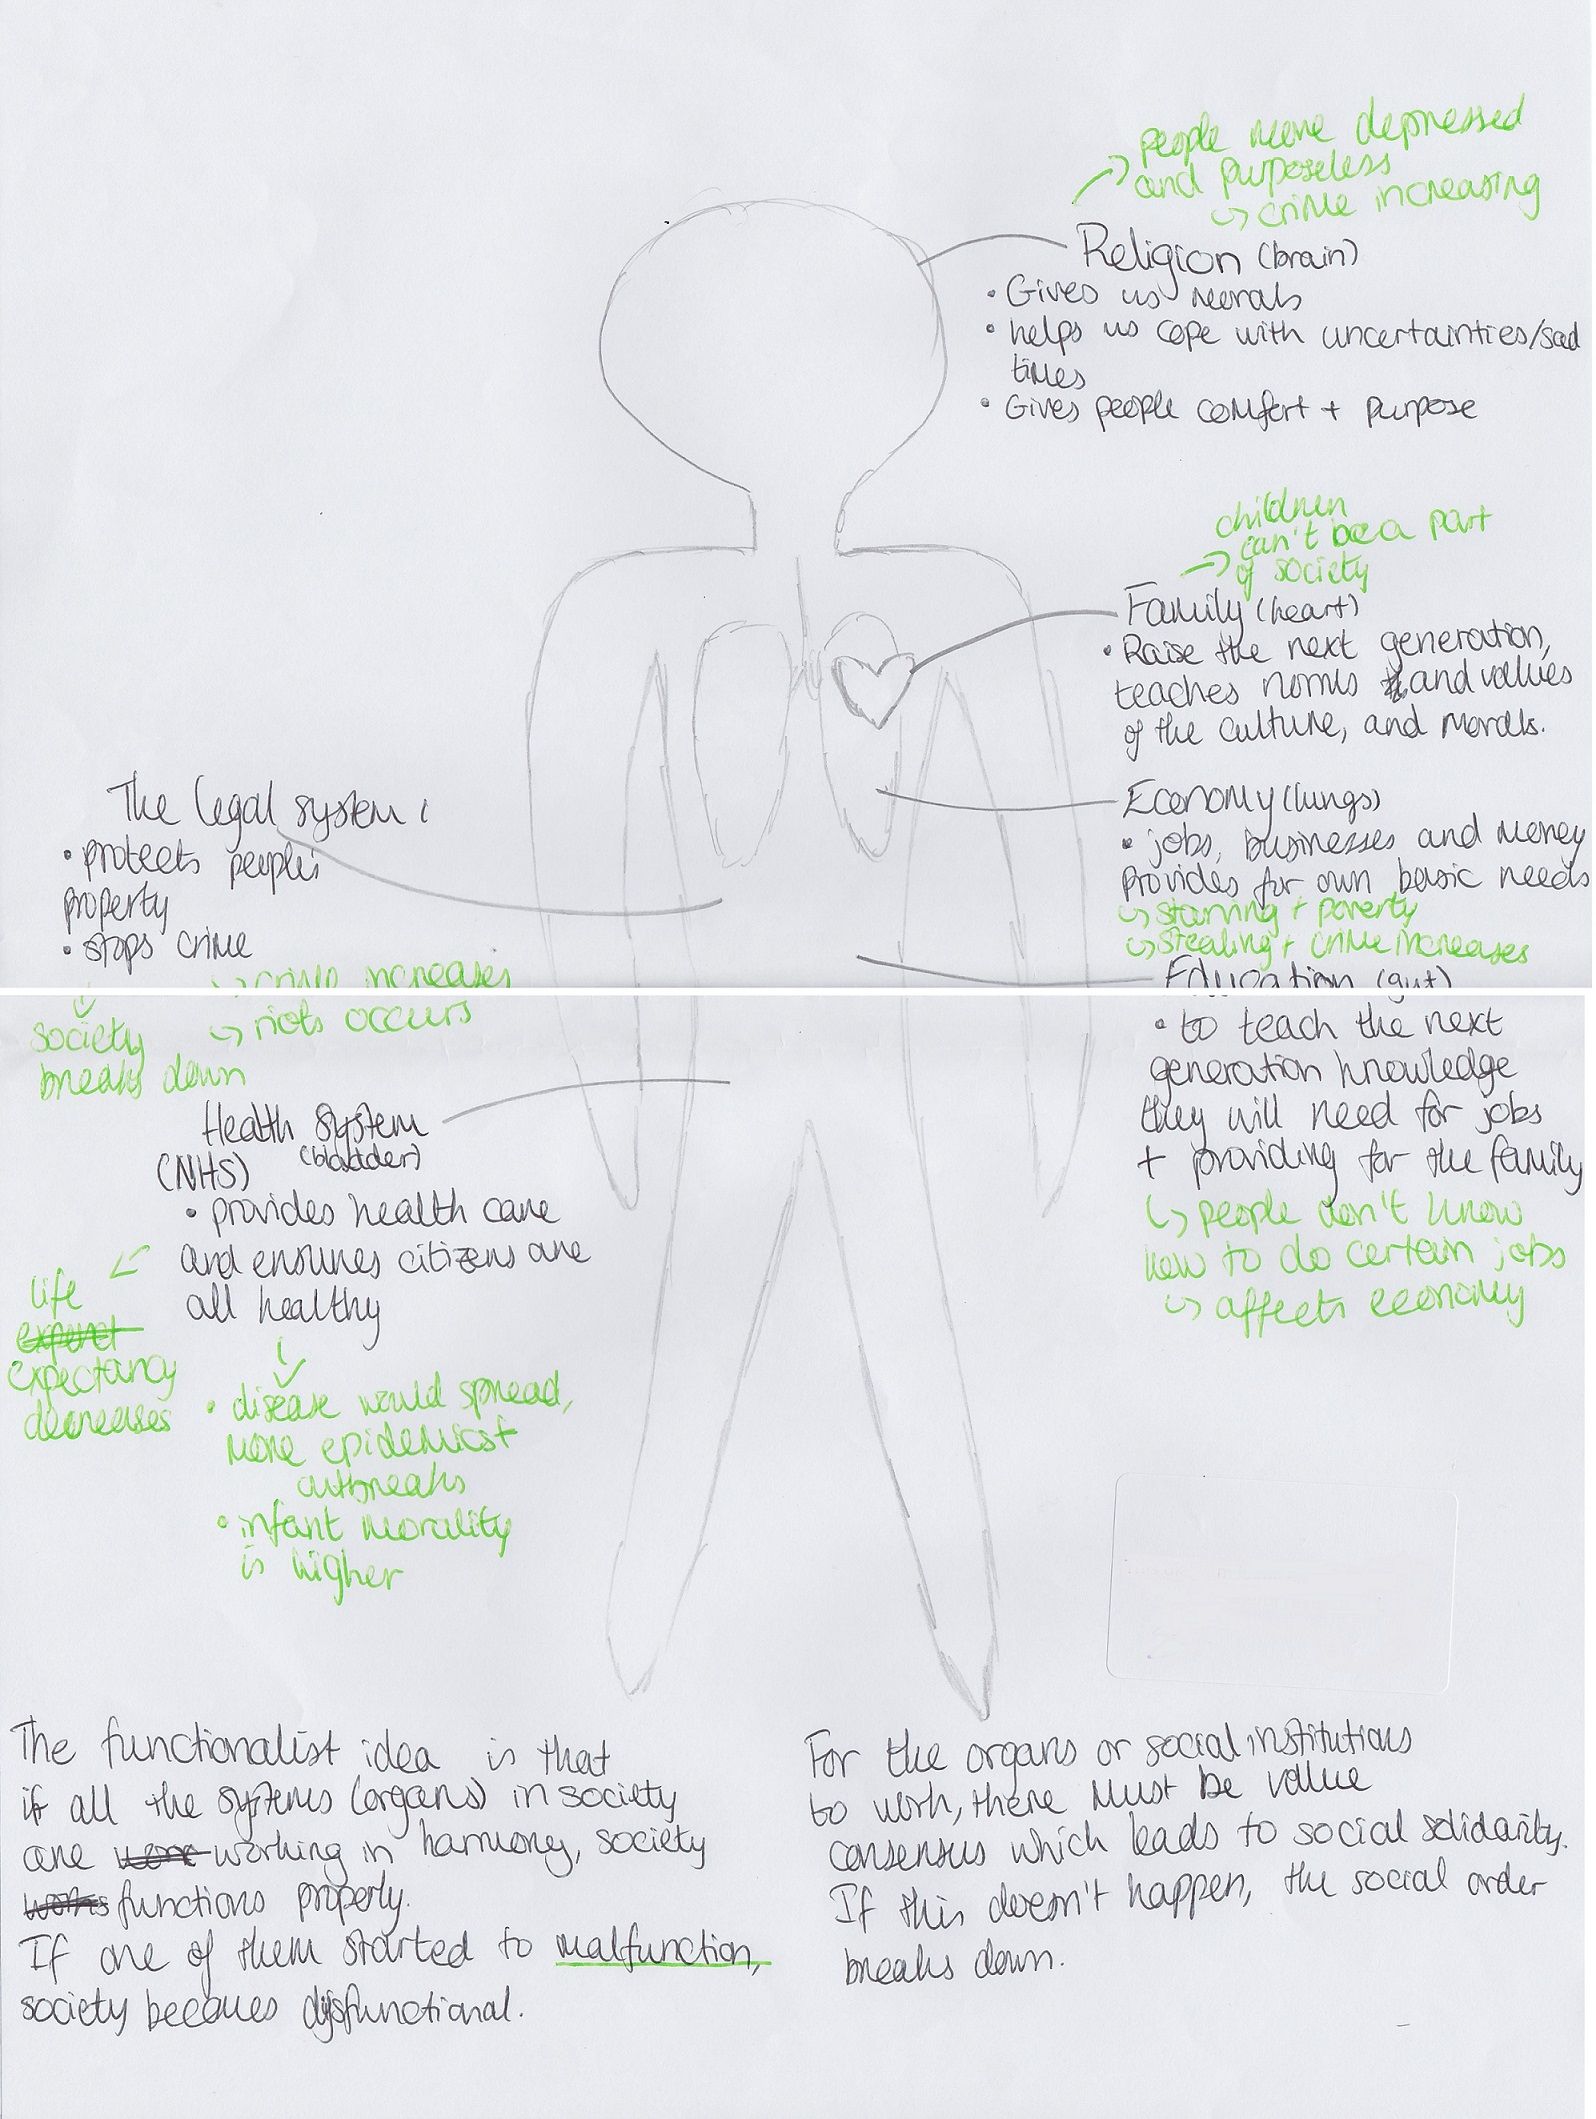 people more depressed
and purposeless
↳ crime increasing
Religion (brain)
• Gives us morals
• helps us cope with uncertainties/sad
times
• Gives people comfort + purpose
children
can't be a part
of society
Family (heart)
• Raise the next generation,
teaches norms and values
of the culture, and morals.
Economy (lungs)
• jobs, businesses and money
provides for own basic needs
↳ starving + poverty
↳ stealing + crime increases
Education (gut)
• to teach the next
generation knowledge
they will need for jobs
+ providing for the family
↳ people don't know
how to do certain jobs
↳ affects economy
The legal system (
• protects peoples
property
• stops crime
↳ crime increases
↳ riots occurs
society
breaks down
Health System
(NHS) (bladder)
• provides health care
and ensures citizens are
all healthy
life
expect
expectancy
decreases
• disease would spread,
more epidemics +
outbreaks
• infant morality
is higher
The functionalist idea is that
if all the systems (organs) in society
are work working in harmony, society
works functions properly.
If one of them started to malfunction,
society becomes dysfunctional.
For the organs or social institutions
to work, there must be value
consensus which leads to social solidarity.
If this doesn't happen, the social order
breaks down.